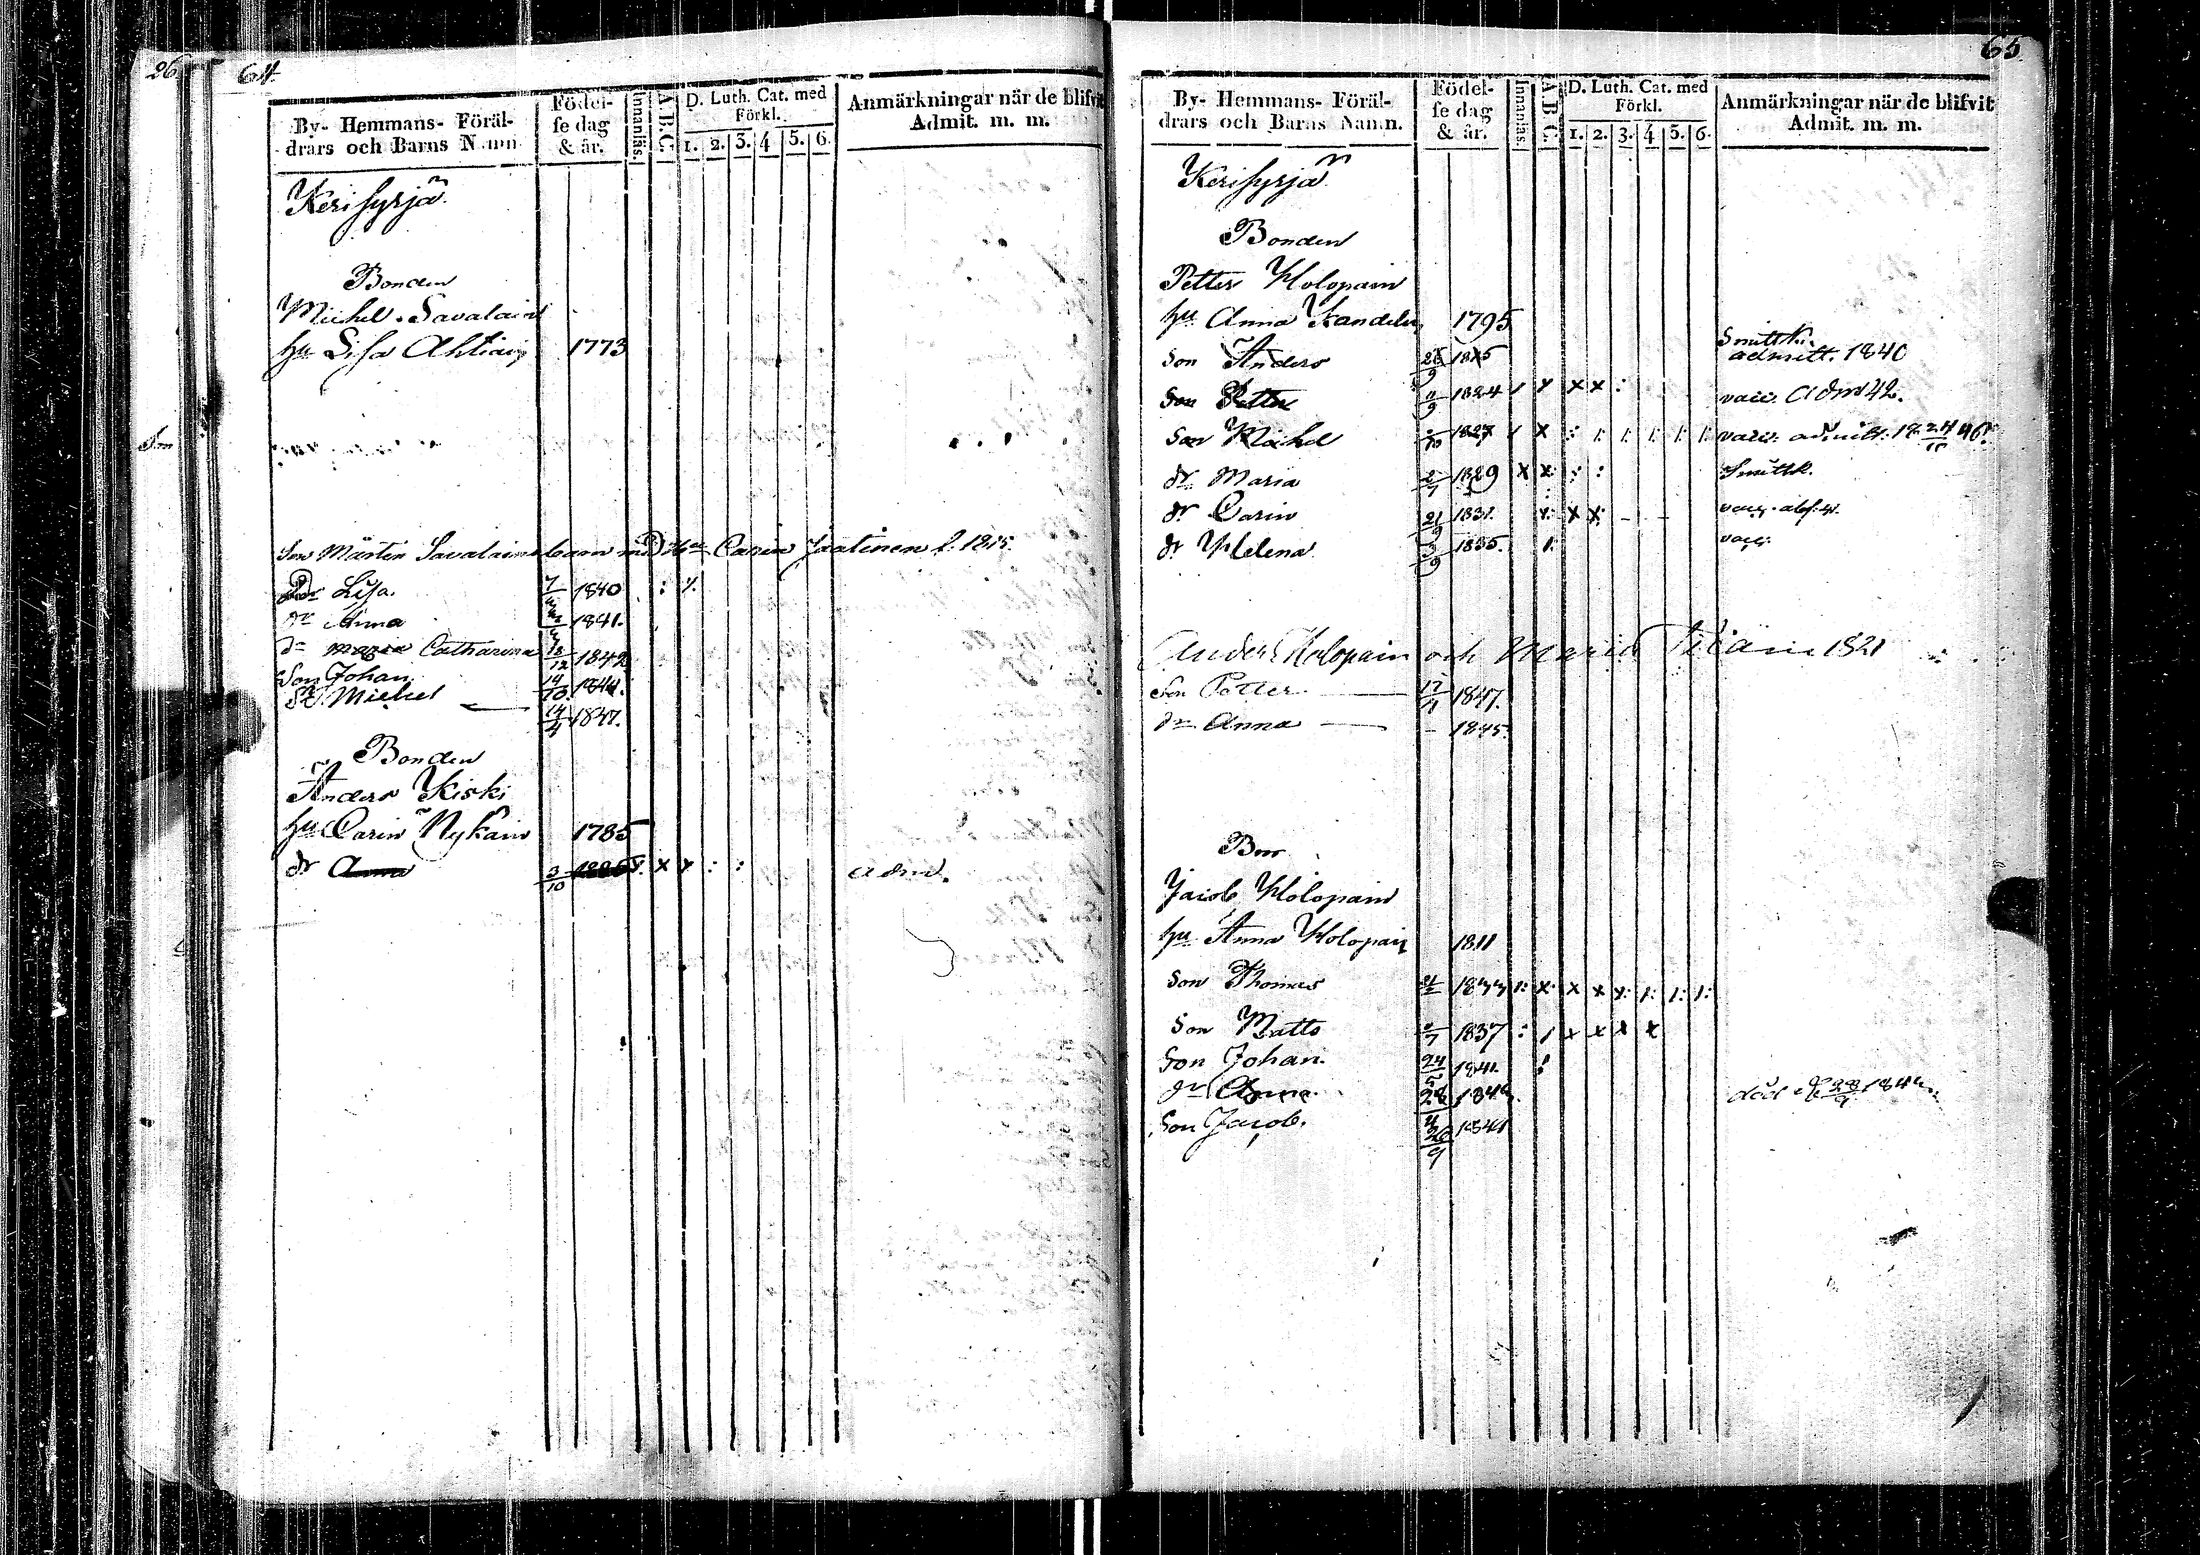 26
64.
By- Hemmans- Föräl-
drars och Barns Namn
Födel-
se dag
& år.
Innanläs.
A.B.C.
D. Luth. Cat. med
Förkl.
1. 2. 3. 4 5. 6.
Anmärkningar när de blifvit
Admit. m. m.
Kerisyrjä
Bonden
Michel Savalain
hu Lisa Ahtiain 1773
Son
Son Mårten Savalains barn med Hu Carin Jaatinen f. 1815.
Dr Lisa. 1840
dr Anna 1841.
dr maria Catharina 18/12 1842
Son Johan 14/10 1844.
Sn Michel 14/4 1847.
Bonden
Anders Kiski
hu Carin Nykäin 1785
dr Anna 3/10 x x : : adm.
65.
By- Hemmans- Föräl-
drars och Barns Namn.
Födel-
se dag
& år.
Innanläs.
A.B.C.
D. Luth. Cat. med
Förkl.
1. 2. 3. 4 5. 6.
Anmärkningar när de blifvit
Admit. m. m.
Kerisyrjä
Bonden
Petter Holopain
hu Anna Kandelin 1795
Son Anders 1815 Smittk. admitt. 1840
Son Petter 11/9 1824 vacc. Adm 42.
Son Michel 1827 vacc. admitt. 46
dr Maria 1829 x x : : Smittk.
dr Carin 21/9 1831. vacc.
dr Helena 3/9 1835. vacc.
Anders Holopain och Maria 1821
Son Petter 17/11 1847.
dr Anna – 1845.
Bon
Jacob Holopain
hu Anna Holopain 1811
Son Thomas
Son Matts 1837 : / x x x x
Son Johan. 24/5 1841.
dr Anna. död
Son Jacob. 26/9